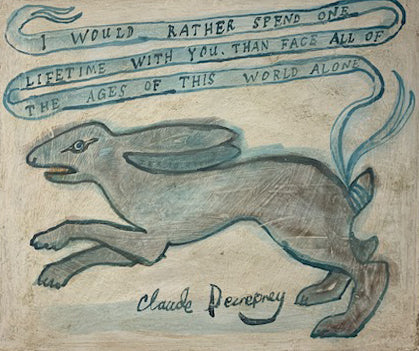 I WOULD RATHER SPEND ONE
LIFETIME WITH YOU, THAN FACE ALL OF
THE AGES OF THIS WORLD ALONE
Claude